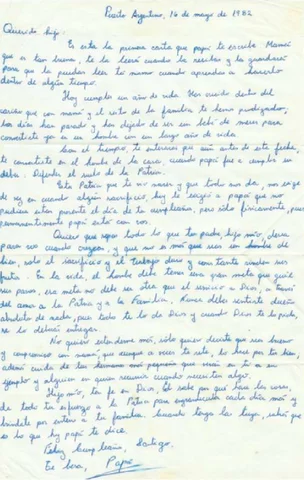 Puerto Argentino, 16 de mayo de 1982
Querido hijo:
Es esta la primera carta que papá te escribe. Mamá
que es tan buena, te la leerá cuando la reciba y la guardará
para que la puedas leer tú mismo cuando aprendas a hacerlo
dentro de algún tiempo.
Hoy cumples un año de vida. Has crecido dentro del
cariño que con mamá y el resto de la familia te hemos prodigado,
los días han pasado y has dejado de ser un bebé de meses para
convertirte ya en un hombre con un largo año de vida.
Con el tiempo, te enterarás que aún antes de esta fecha,
te convertiste en el hombre de la casa, cuando papá fue a cumplir su
deber. Defender el suelo de la Patria.
Esta Patria que te vio nacer y que todo nos da, nos exige
de vez en cuando algún sacrificio, hoy le exigió a papá que no
pudiera estar presente el día de tu cumpleaños, pero sólo físicamente, pues
permanentemente papá está con vos.
Quiero que sepas todo lo que tus padres, hijo mío,
para vos cuando crezcas, y que no es más que seas un hombre de
bien, sólo el sacrificio y el trabajo duro y constante rinden sus
frutos. En la vida, el hombre debe tener una gran meta que guíe
sus pasos, esa meta no debe ser otra que el servicio a Dios, a través
del amor a la Patria y a la Familia. Nunca debes sentirte dueño
absoluto de nada, pues todo te lo da Dios y cuando Dios te lo pide,
se lo deberás entregar.
No quiero extenderme más, sólo quiero decirte que seas bueno
y compañero con mamá, que aunque a veces te rete, lo hace por tu bien,
además cuida de tus hermanos más pequeños que verán en ti a un
ejemplo y alguien en quien recurrir cuando necesiten algo.
Hijo mío, ten fe en Dios, Él sabe por qué hace las cosas,
da todo tu esfuerzo a la Patria para engrandecerla cada día más y
bríndate por entero a tu familia. Cuando tengas la tuya, sabrás que
es lo que hoy papá te dice.
Feliz Cumpleaños, Santiago.
Papá